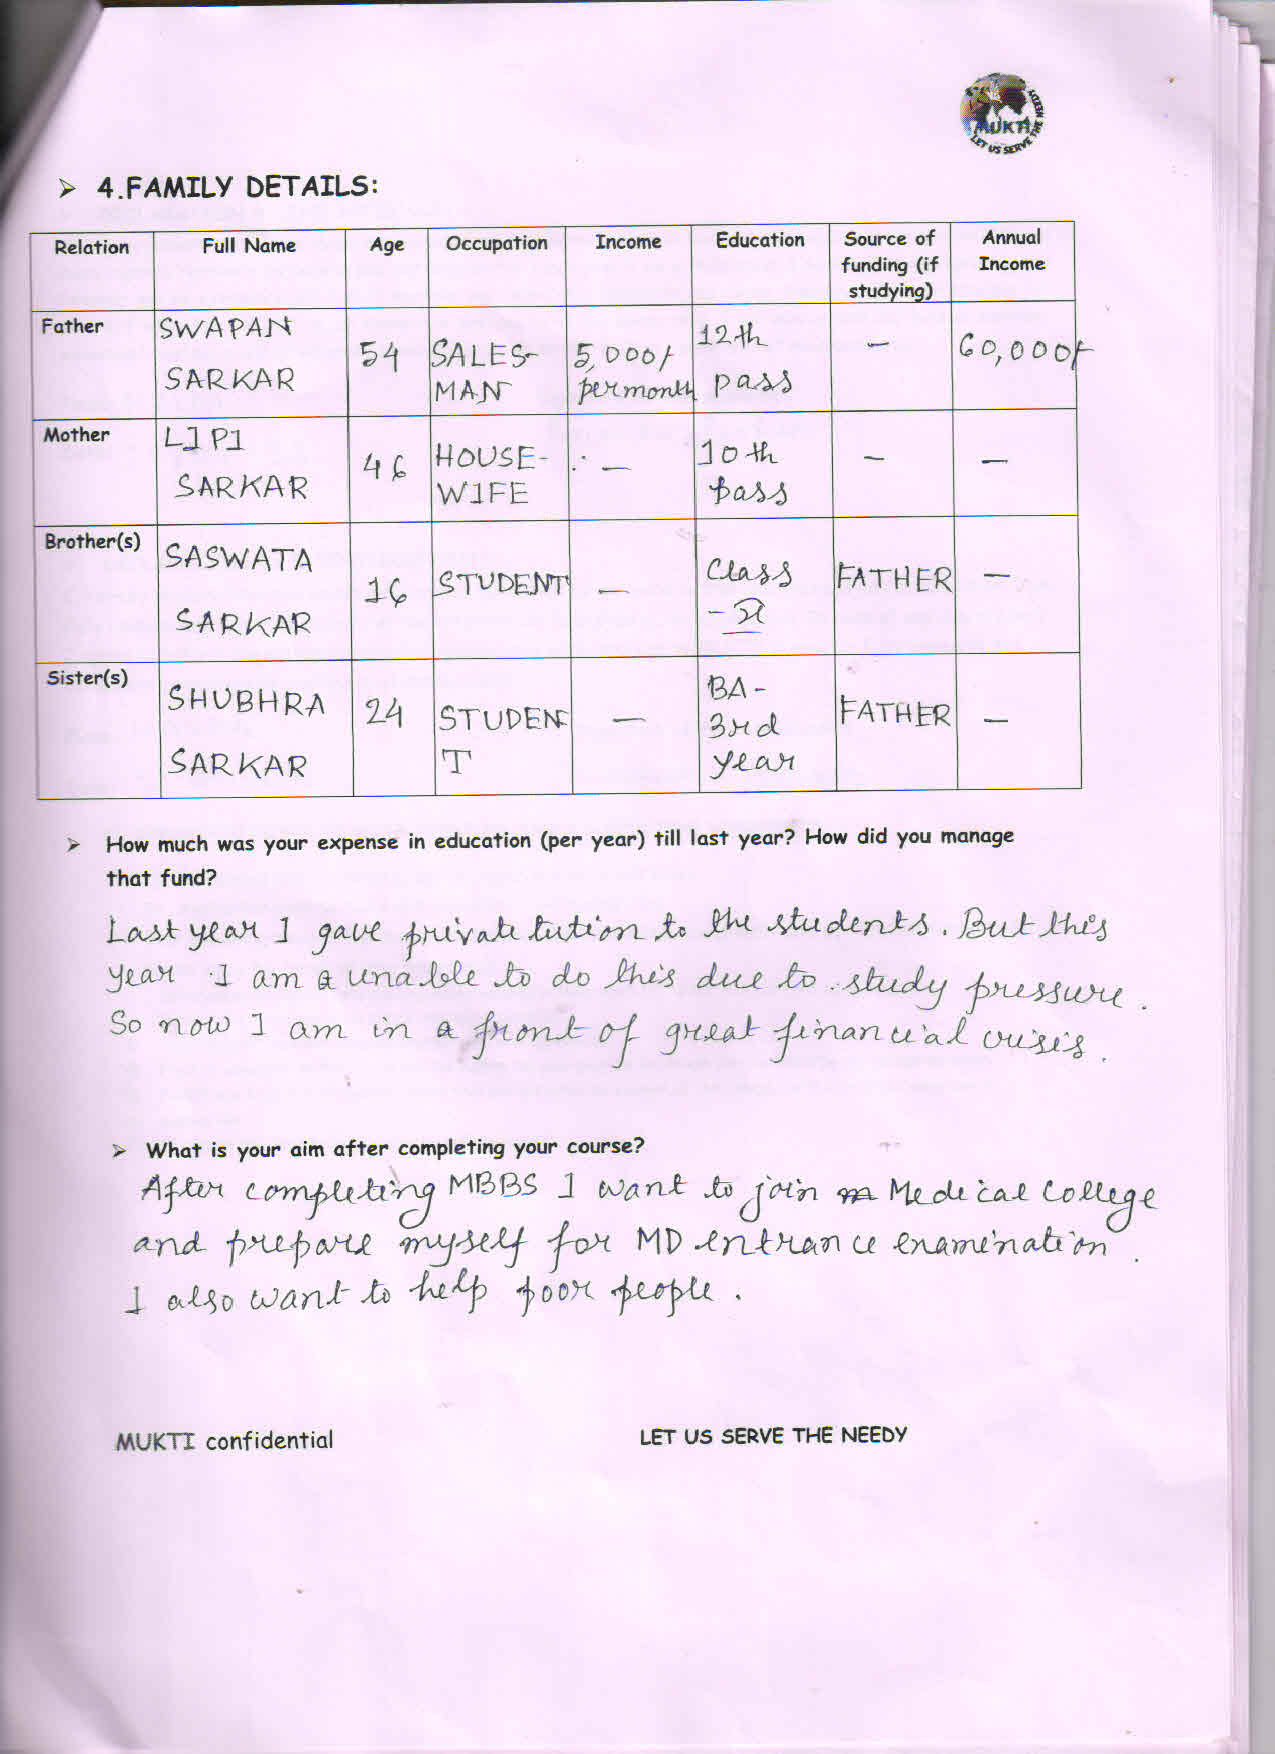 MUKTI
LET US SERVE THE NEEDY
➢ 4.FAMILY DETAILS:
Relation Full Name Age Occupation Income Education Source of funding (if studying) Annual Income
Father SWAPAN SARKAR 54 SALES-MAN 5,000/ per month 12th pass – 60,000/-
Mother LIPI SARKAR 46 HOUSE-WIFE – 10th pass – –
Brother(s) SASWATA SARKAR 16 STUDENT – Class - FATHER –
Sister(s) SHUBHRA SARKAR 24 STUDENT – BA-3rd year FATHER –
➢ How much was your expense in education (per year) till last year? How did you manage
that fund?
Last year I gave private tution to the students. But this
year I am a unable to do this due to study pressure.
So now I am in a front of great financial crisis.
➢ What is your aim after completing your course?
After completing MBBS I want to join Medical College
and prepare myself for MD entrance enamination.
I also want to help poor people.
MUKTI confidential LET US SERVE THE NEEDY